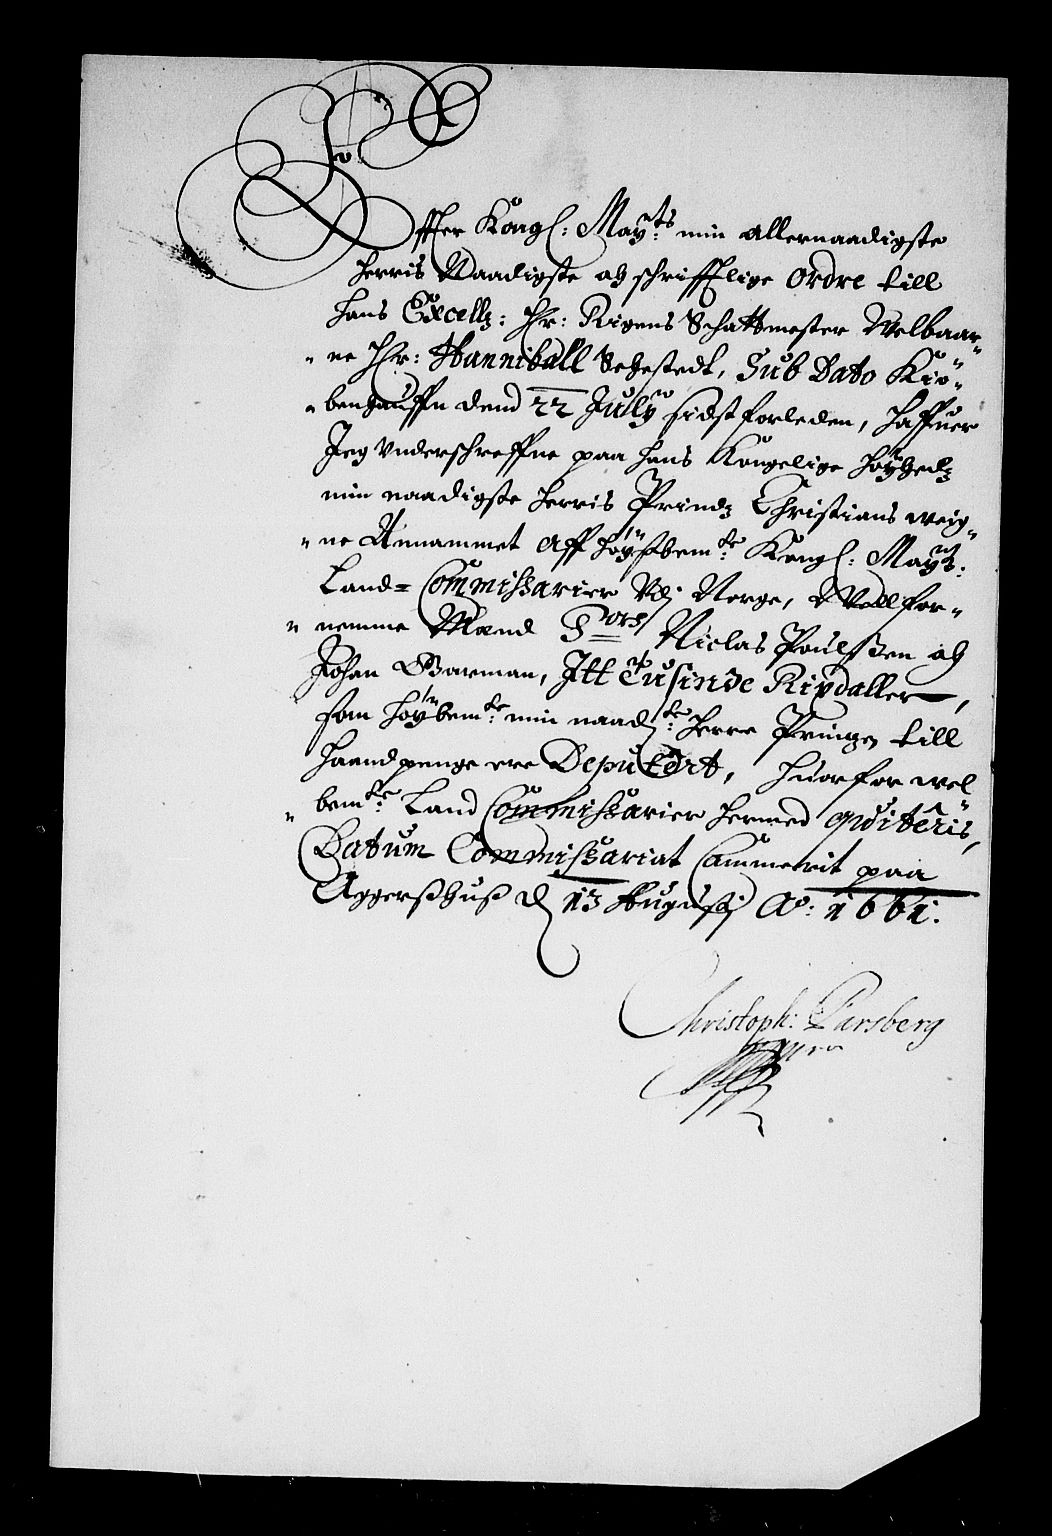 Effter Kongl: Maytts: min allernaadigste
Herris Naadigste och schrifftlige Ordre till
Hans Excelltz: Hr: Rigens Schattmester Welbaar-
ne Hr: Hanniball Sehestedt, Sub Dato Kiø-
benhauffn dend 22 July sidst forleden, Haffuer
Jeg Underschreffne paa Hans Kongelige Høyhedz
min naadigste Herris Printz Christians weig-
ne Annammet Aff Høystbemte: Kongl: Maytt:
Land- Commissarier Udj Norge, Vellfor-
nemme Mænd Niclas Poulsßen och
Johan Garman, Jtt Tusinde Rixdaller,
som Høybemte: min naadigste: Herre Printzen till
Haandpenge ere Deputêrt, Huorfor wel
bemte: Land Commissarier Hermed quitêris,
Datum Commissariat Cammerit paa
Aggerßhuß d 13 Augustj Ao: 1661.
Christoph: Parsberg